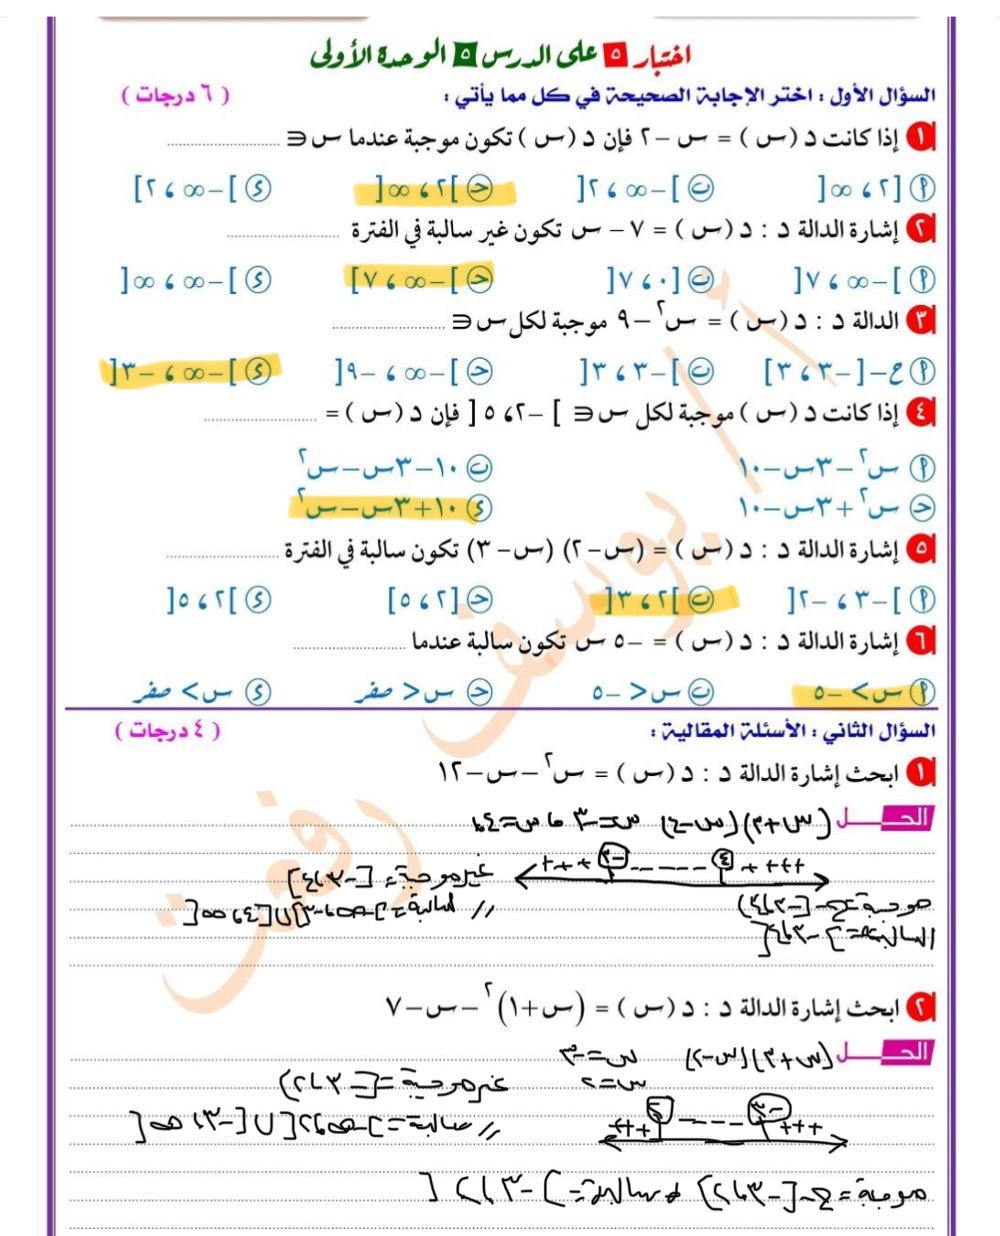 اختبار ٥ على الدرس ٥ الوحدة الأولى
السؤال الأول : اختر الإجابة الصحيحة في كل مما يأتي : ( ٦ درجات )
١ إذا كانت د ( س ) = س - ٢ فإن د ( س ) تكون موجبة عندما س ∈ ..............
أ [٢ ، ∞ [ ب ] -∞ ، ٢ [ ج ] ٢ ، ∞ [ د ] -∞ ، ٢ ]
٢ إشارة الدالة د : د ( س ) = ٧ - س تكون غير سالبة في الفترة ..............
أ ] -∞ ، ٧ [ ب [ ٠ ، ٧ [ ج ] -∞ ، ٧ ] د ] -∞ ، ∞ [
٣ الدالة د : د ( س ) = س٢ - ٩ موجبة لكل س ∈ ..............
أ ح - [ -٣ ، ٣ ] ب ] -٣ ، ٣ [ ج ] -∞ ، -٩ [ د ] -∞ ، -٣ [
٤ إذا كانت د ( س ) موجبة لكل س ∈ ] -٢ ، ٥ [ فإن د ( س ) = ..............
أ س٢ - ٣س - ١٠ ب ١٠ - ٣س - س٢
ج س٢ + ٣س - ١٠ د ١٠ + ٣س - س٢
٥ إشارة الدالة د : د ( س ) = (س - ٢) (س - ٣) تكون سالبة في الفترة ..............
أ ] -٣ ، -٢ [ ب ] ٢ ، ٣ [ ج [ ٢ ، ٥ ] د ] ٢ ، ٥ [
٦ إشارة الدالة د : د ( س ) = -٥ س تكون سالبة عندما ..............
أ س > -٥ ب س < -٥ ج س < صفر د س > صفر
السؤال الثاني : الأسئلة المقالية : ( ٤ درجات )
١ ابحث إشارة الدالة د : د ( س ) = س٢ - س - ١٢
الحل (س+٣)(س-٤) س=-٣ ، س=٤
+++ -٣ ----- ٤ ++++
غير موجبة = [-٣،٤]
موجبة = ح - [-٣،٤]
السالبة = ]-٣،٤[
٢ ابحث إشارة الدالة د : د ( س ) = (س + ١)٢ - س - ٧
الحل (س+٣)(س-٢) س=-٣
س=٢
غير موجبة = [-٣،٢]
+++ ٢ ---- -٣ +++
موجبة = ح - [-٣،٢] ، سالبة = ]-٣،٢[
أ / يوسف رفعت